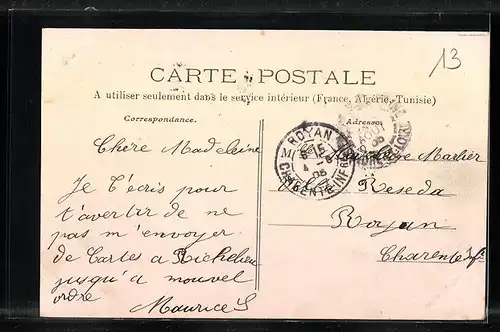 13
CARTE POSTALE
A utiliser seulement dans le service intérieur (France, Algérie, Tunisie)
Correspondance.
Adresse
Chère Madeleine
Je t'écris pour
t'avertir de ne
pas m'envoyer
de Cartes a Richelieu
jusqu'a nouvel
ordre
Maurice S
ROYAN
08
CHARENTE INFRE
Reseda
Royan
Charente Infre